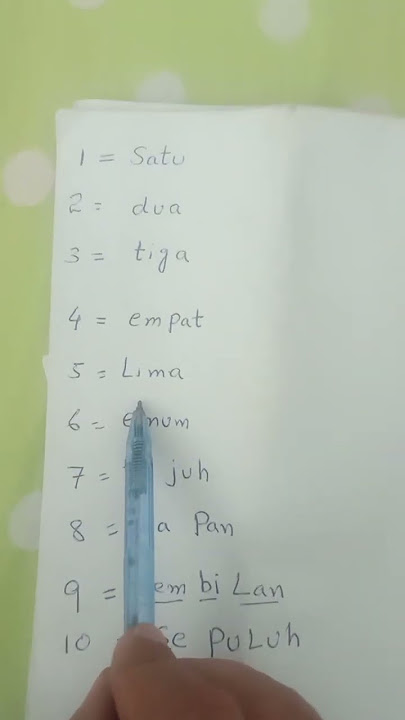 1 = Satu
2 = dua
3 = tiga
4 = empat
5 = Lima
6 =
7 = juh
8 = Pan
9 = bi Lan
10 Se PuLuh